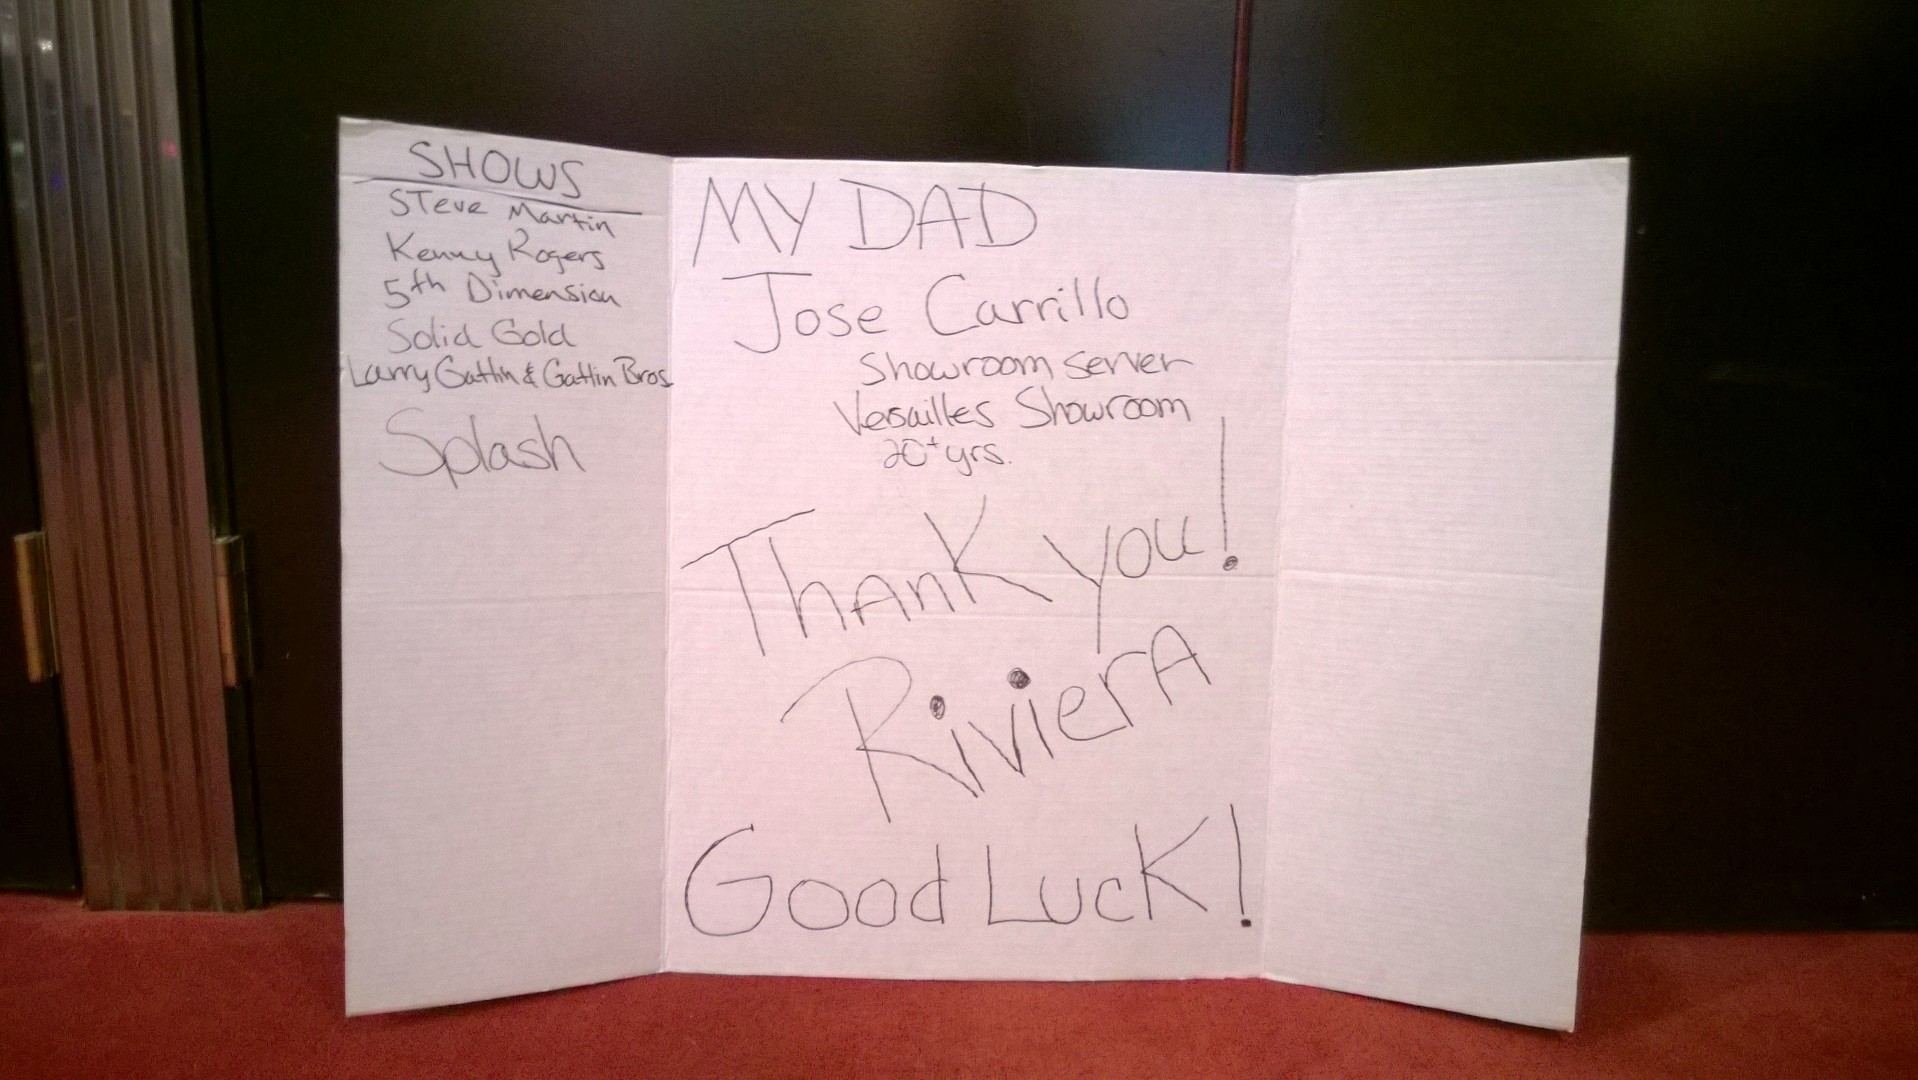 SHOWS
Steve Martin
Kenny Rogers
5th Dimension
Solid Gold
Larry Gatlin & Gatlin Bros
Splash
MY DAD
Jose Carrillo
Showroom server
Versailles Showroom
20+ yrs.
Thank you!
Riviera
Good Luck!